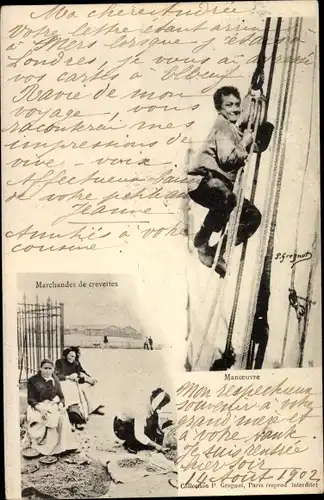 Ma chère Andrée
Votre lettre étant arrivée
à Mers lorsque j'étais à
Londres, je vous ai adressé
vos cartes à Elbeuf
Ravie de mon
voyage, vous
raconterai mes
impressions de
vive-voix
Affectueux
de votre petite
Jeanne
Amitiés à votre
cousine
P. Grognet
Marchandes de crevettes
Manœuvre
Mon respectueux
souvenir à votre
grand'mère et
à votre tante
Je suis rentrée
hier soir
Août 1902
Collection P. Grognet, Paris (reprod. interdite)